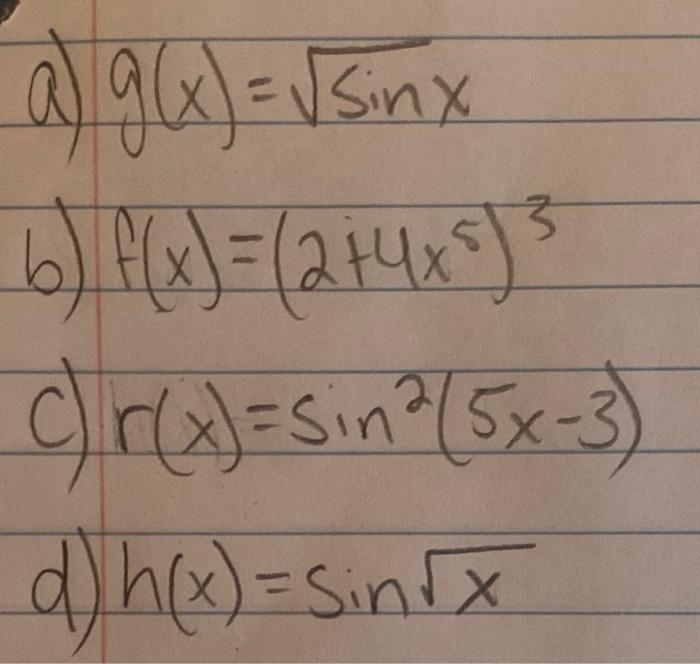 a) g(x)=√sinx
b) f(x)=(2+4x⁵)³
c) r(x)=sin²(5x-3)
d) h(x)=sin√x